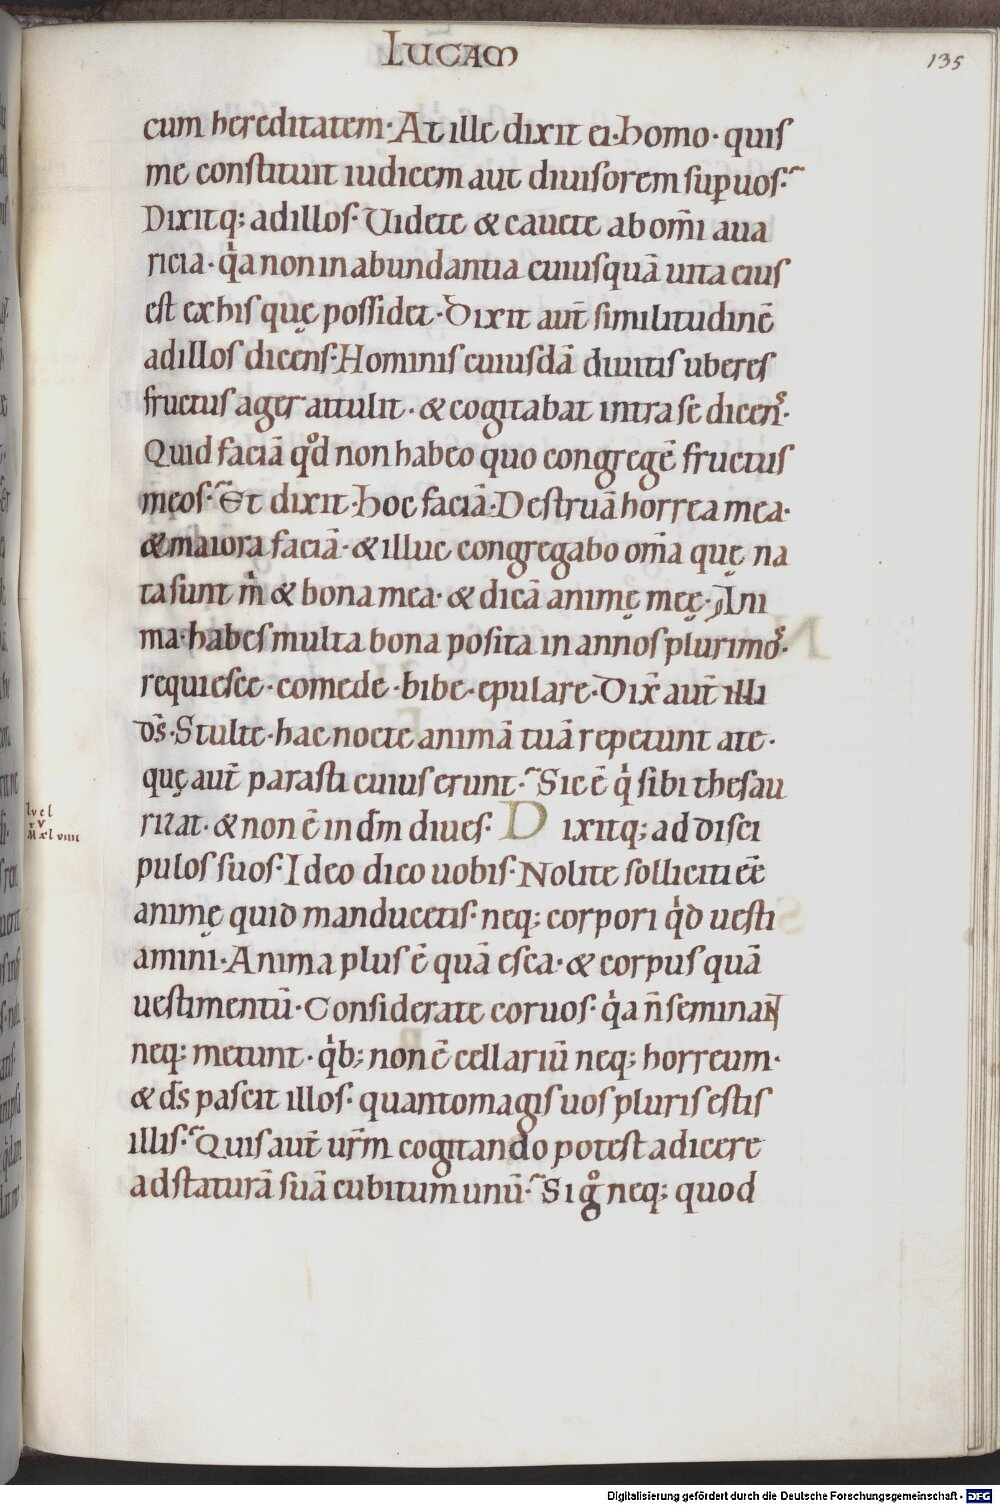 LUCAM
135
cum hereditatem· At ille dixit ei· homo· quis
me constituit iudicem aut diuisorem sup uos·
Dixitq; ad illos· Uidete & cauete ab om̄i aua
ricia· qͥa non in abundantia cuiusquā uita eius
est ex his quę possidet· Dixit aut̄ similitudinē
ad illos dicens· Hominis cuiusdā diuitis uberes
fructus ager attulit· & cogitabat intra se dicens·
Quid faciā qͦd non habeo quo congregē fructus
meos· Et dixit· hoc faciā· Destruā horrea mea·
& maiora faciā· & illuc congregabo om̄a quę na
ta sunt m̍ & bona mea· & dicā animę meę· Ani
ma· habes multa bona posita in annos plurimos·
requiesce· comede· bibe· epulare· Dix̄ aut̄ illi
ds̄· Stulte· hac nocte animā tuā repetunt a te·
quę aut̄ parasti cuius erunt· Sic ē qͥ sibi thesau
rizat· & non ē in dm̄ diues· Dixitq; ad disci
lvel
v
Mxlviiii
pulos suos· Ideo dico uobis· Nolite solliciti eē
animę quid manducetis· neq; corpori qͥd uesti
amini· Anima plus ē quā esca· & corpus quā
uestimentū· Considerate coruos· qͥa n̄ seminant
neq; metunt· qͥb; non ē cellariū neq; horreum·
& ds̄ pascit illos· quanto magis uos pluris estis
illis· Quis aut̄ ur̄m cogitando potest adicere
ad staturā suā cubitum unū· Si gͦ neq; quod
Digitalisierung gefördert durch die Deutsche Forschungsgemeinschaft - DFG